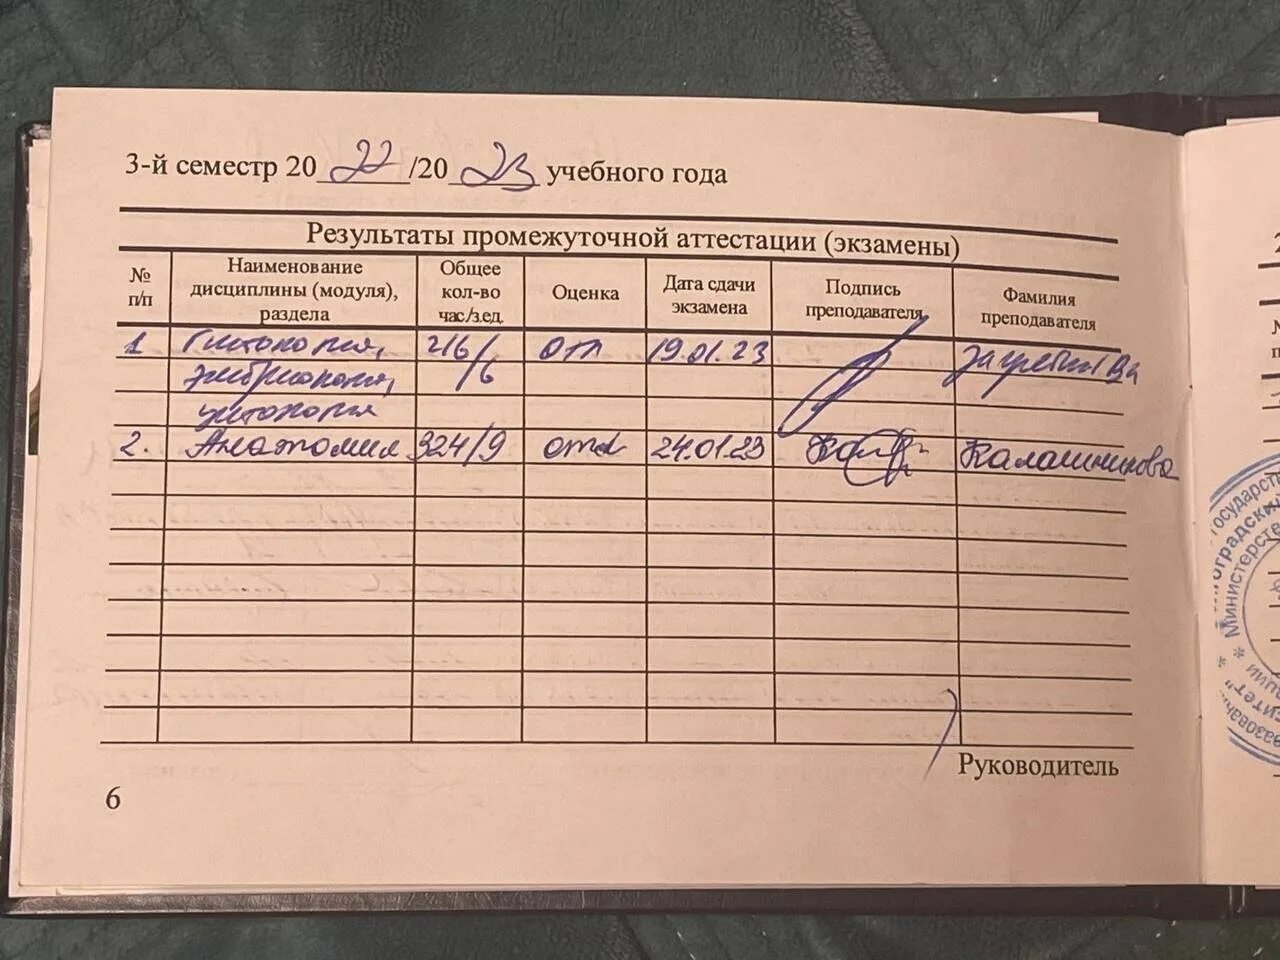 3-й семестр 20 22 /20 23 учебного года
Результаты промежуточной аттестации (экзамены)
№ п/п
Наименование дисциплины (модуля), раздела
Общее кол-во час/з.ед.
Оценка
Дата сдачи экзамена
Подпись преподавателя
Фамилия преподавателя
1 Гистология, 216/ отл 19.01.23
эмбриология, /6
цитология
2. Анатомия 324/9 отл 24.01.23 Калашникова
Руководитель
6